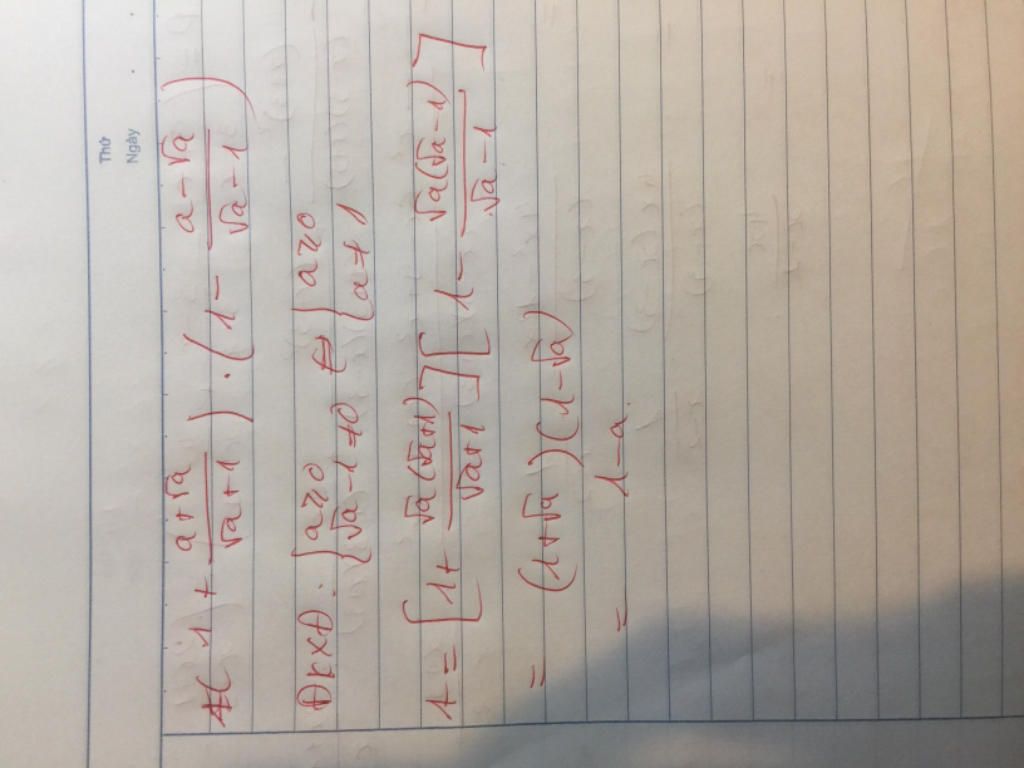 Thứ
Ngày
A = ( 1 + \frac{a+√a}{√a+1} ) . ( 1 - \frac{a-√a}{√a-1} )
ĐKXĐ: { a ≥ 0 √a - 1 ≠ 0 ⇔ { a ≥ 0 a ≠ 1
A = [ 1 + \frac{√a(√a+1)}{√a+1} ] [ 1 - \frac{√a(√a-1)}{√a-1} ]
= (1+√a)(1-√a)
= 1-a.